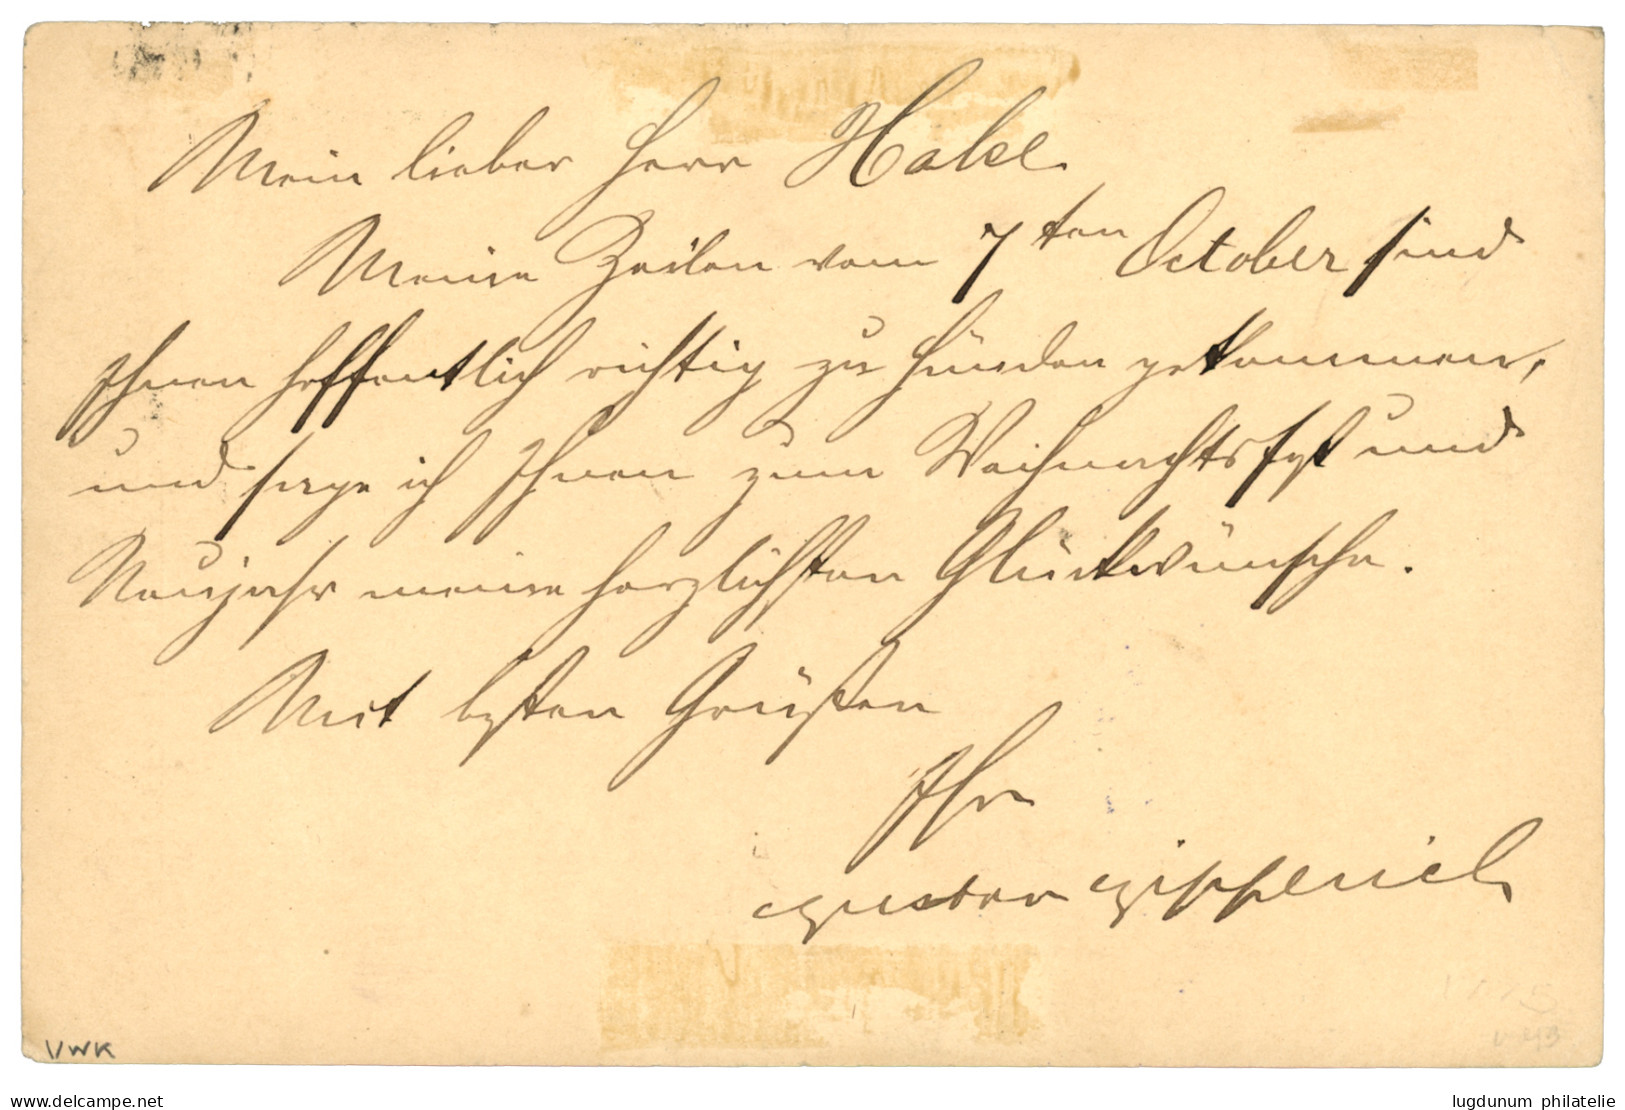 Mein lieber Herr Hake.
Meine Zeilen vom 7ten October sind
Ihnen hoffentlich richtig zu Händen gekommen,
und sage ich Ihnen zum Weihnachtsfest und
Neujahr meine herzlichsten Glückwünsche.
Mit besten Grüßen
Ihr
Gustav
VWK
delcampe.net
lugdunum philatelie